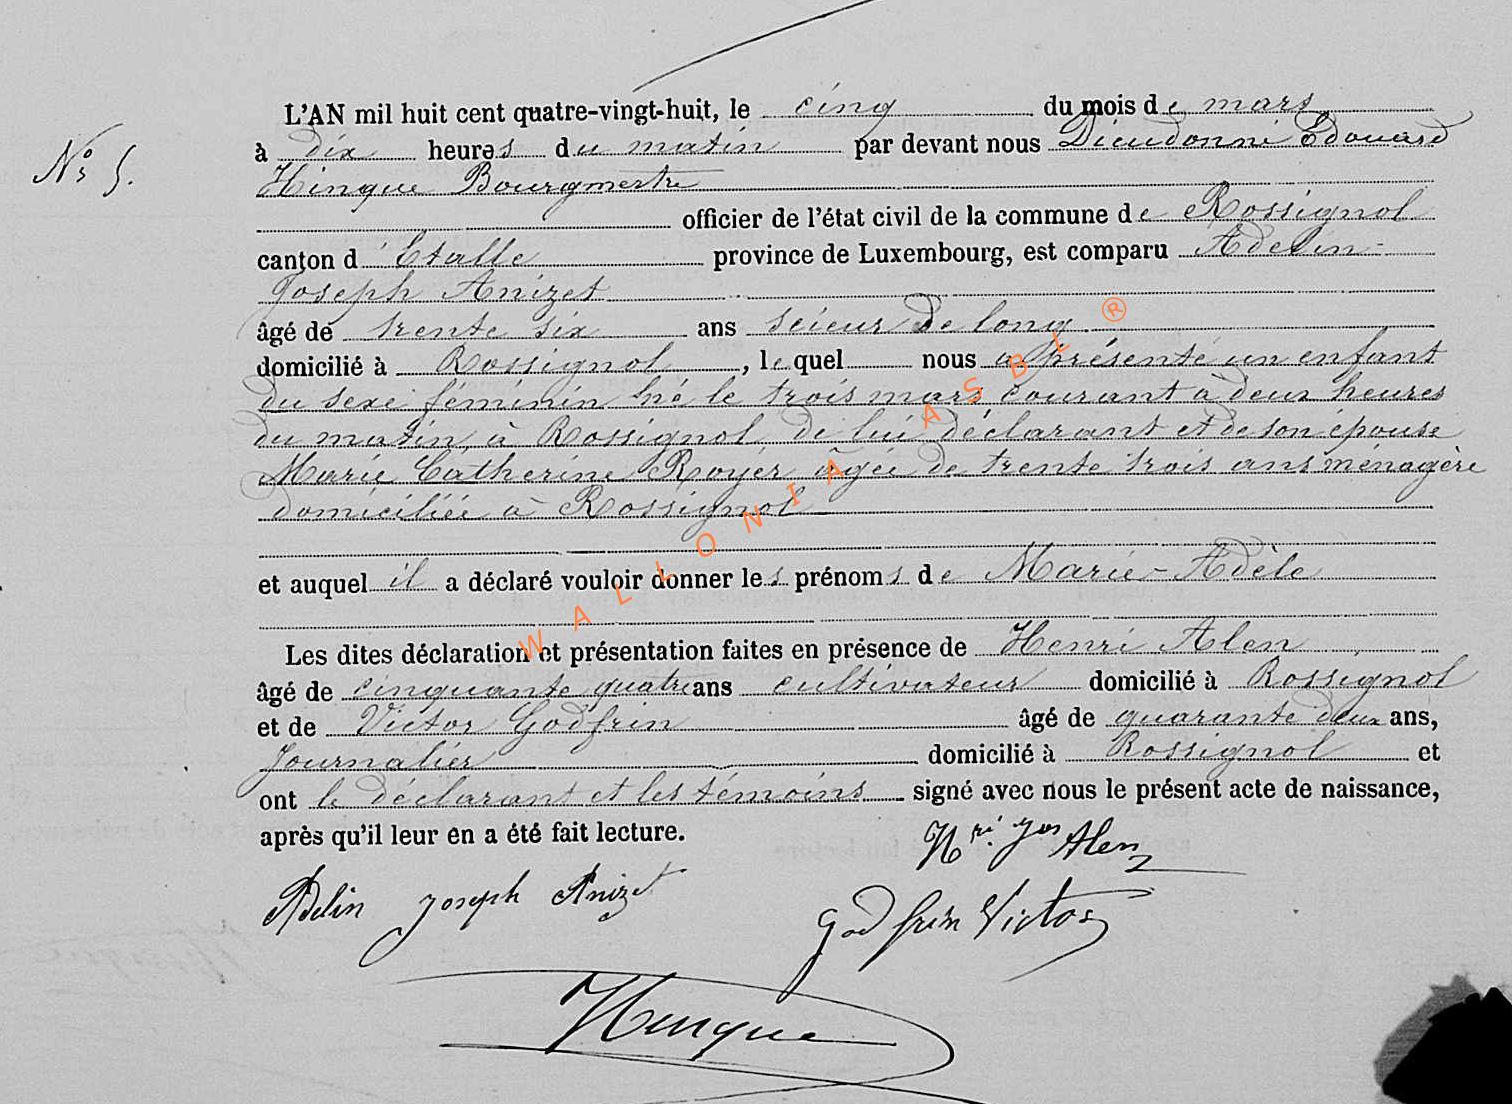 L'AN mil huit cent quatre-vingt-huit, le cinq du mois de mars
No 5.
à dix heures du matin par devant nous Dieudonné Edouard
Hinque Bourgmestre
officier de l'état civil de la commune de Rossignol
canton d'Etalle province de Luxembourg, est comparu Adelin-
Joseph Anizet
âgé de trente six ans scieur de long
domicilié à Rossignol, lequel nous a présenté un enfant
du sexe féminin né le trois mars courant à deux heures
du matin à Rossignol de lui déclarant et de son épouse
Marie Catherine Royer âgée de trente trois ans ménagère
domiciliée à Rossignol
et auquel il a déclaré vouloir donner les prénoms de Marie-Adèle
Les dites déclaration et présentation faites en présence de Henri Alen
âgé de cinquante quatre ans cultivateur domicilié à Rossignol
et de Victor Godfrin âgé de quarante deux ans,
Journalier domicilié à Rossignol et
ont le déclarant et les témoins signé avec nous le présent acte de naissance,
après qu'il leur en a été fait lecture.
Hri. Jos Alen
Adelin Joseph Anizet
Godfrin Victor
Hinque
WALLONIA ASBL ®